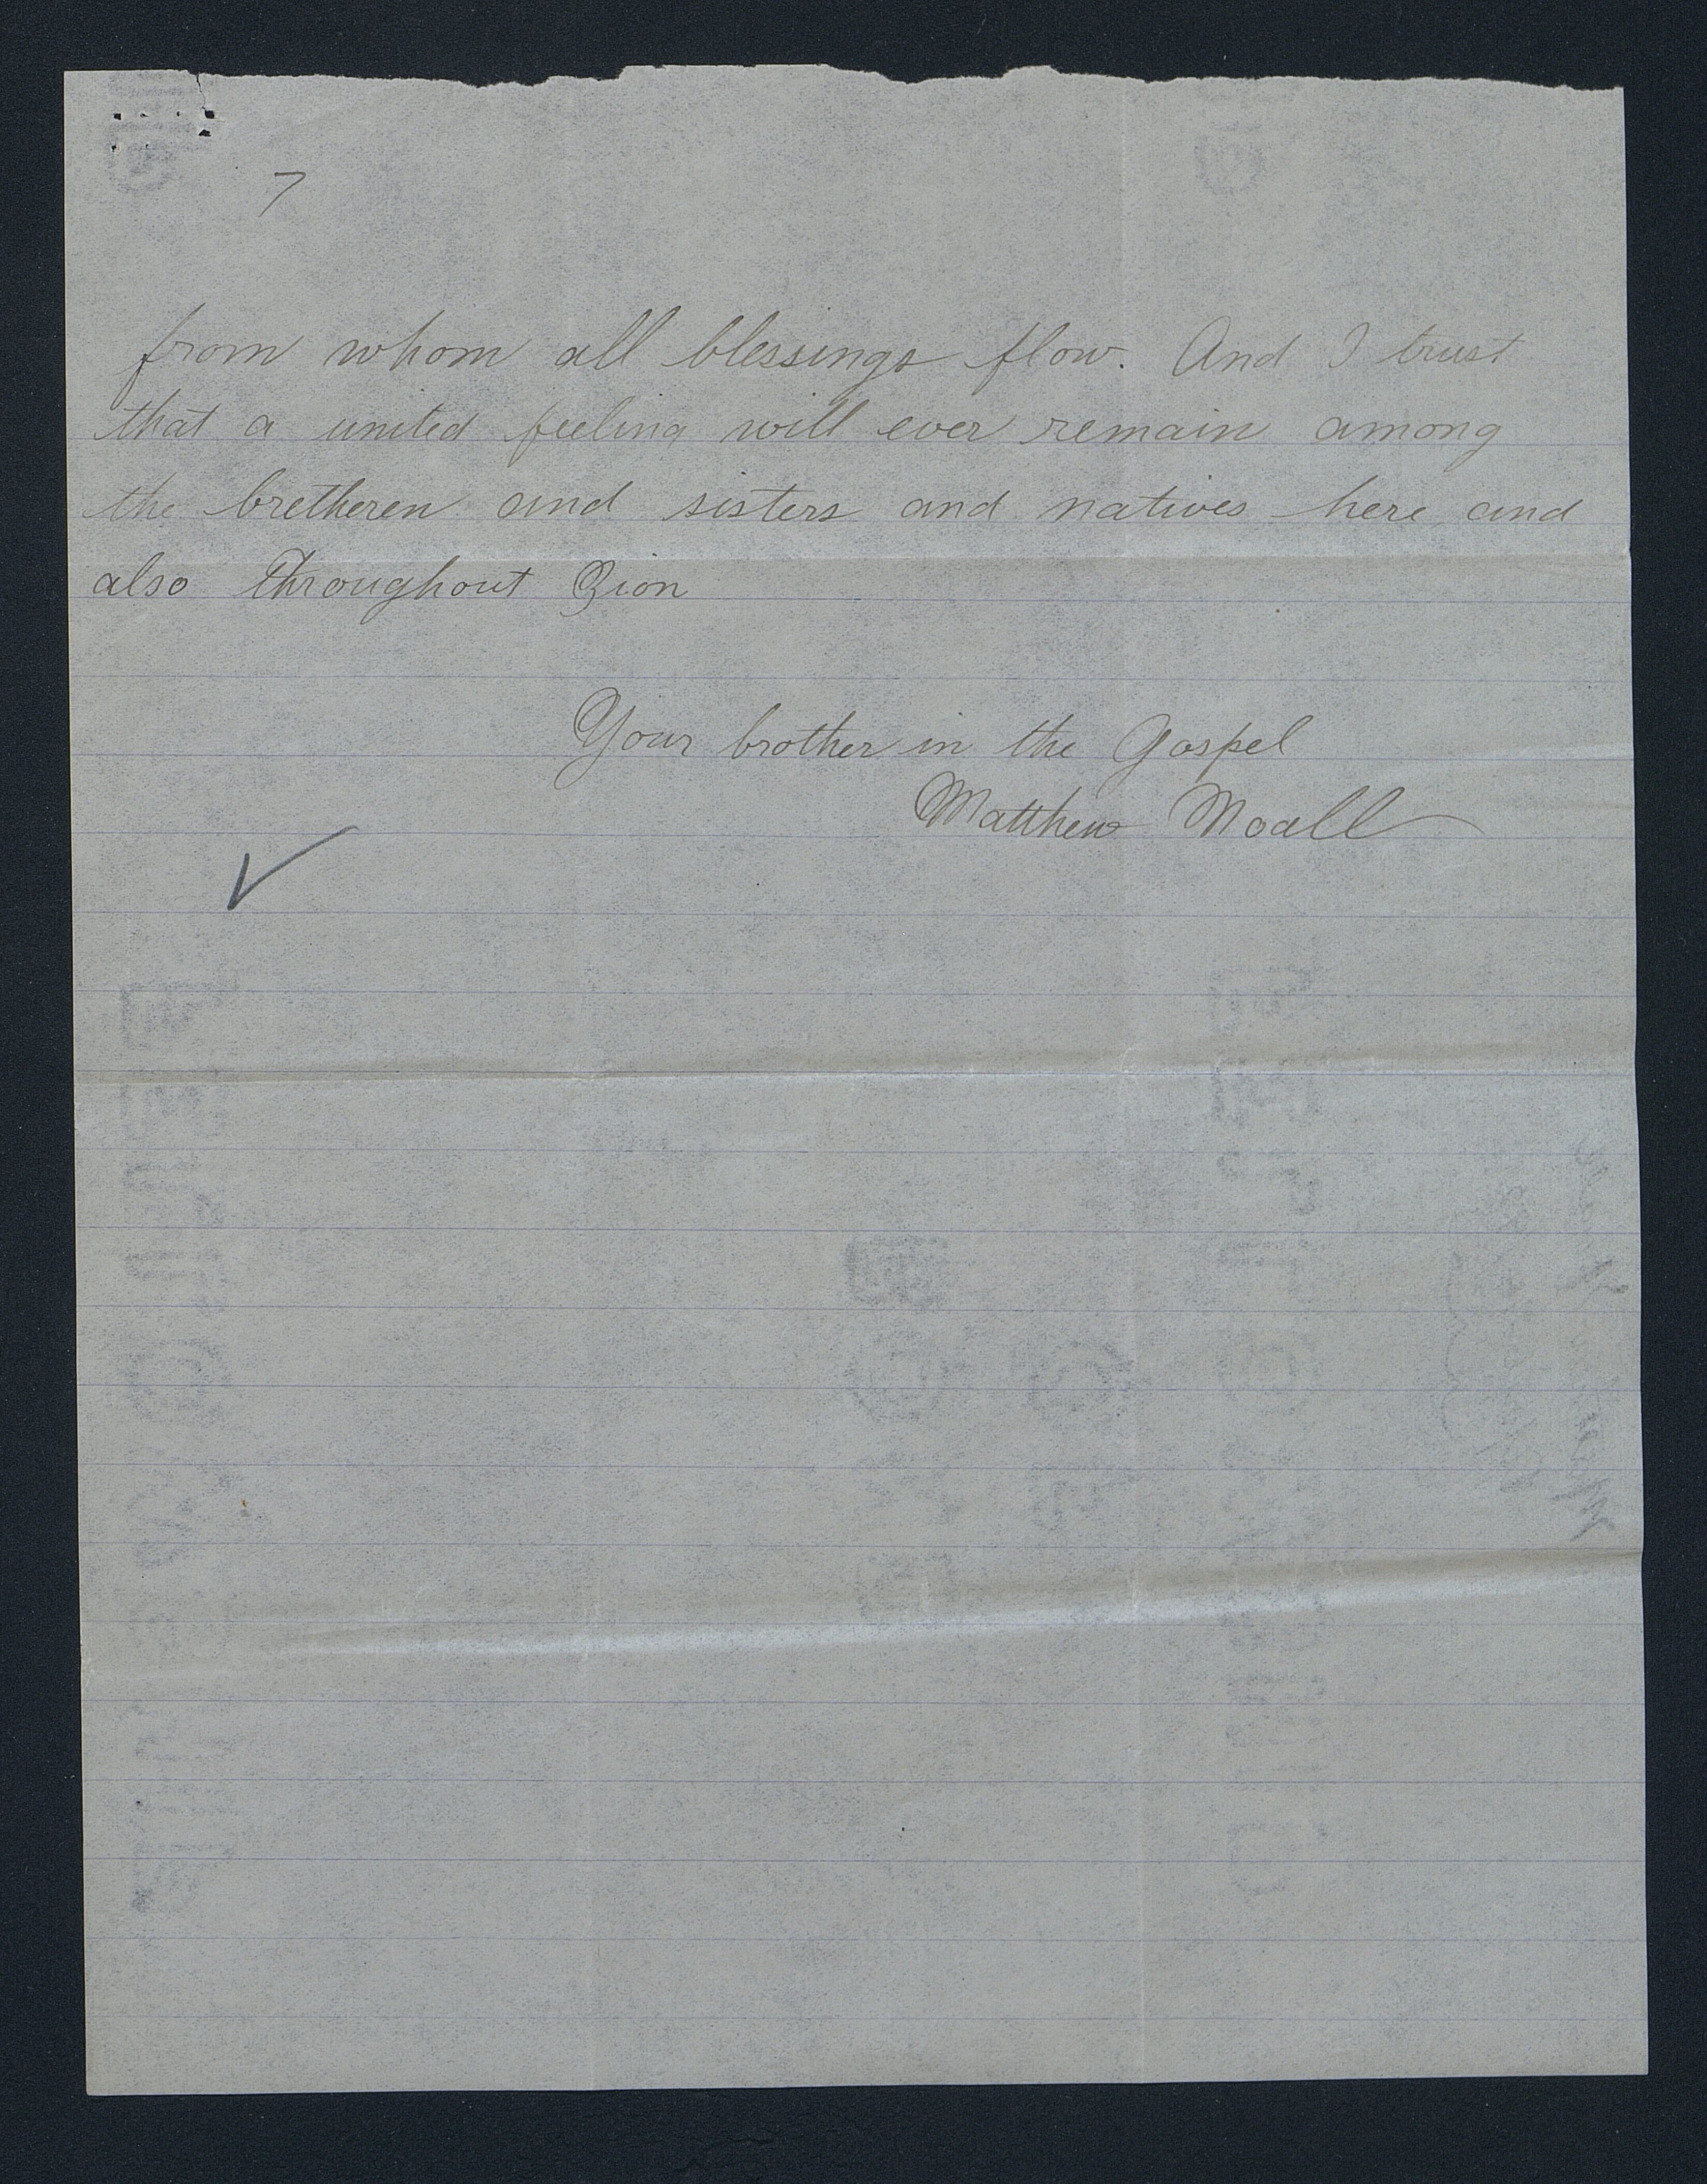 7
from whom all blessings flow. And I trust
that a united feeling will ever remain among
the bretheren and sisters and natives here and
also throughout Zion
Your brother in the Gospel
Matthew Noall